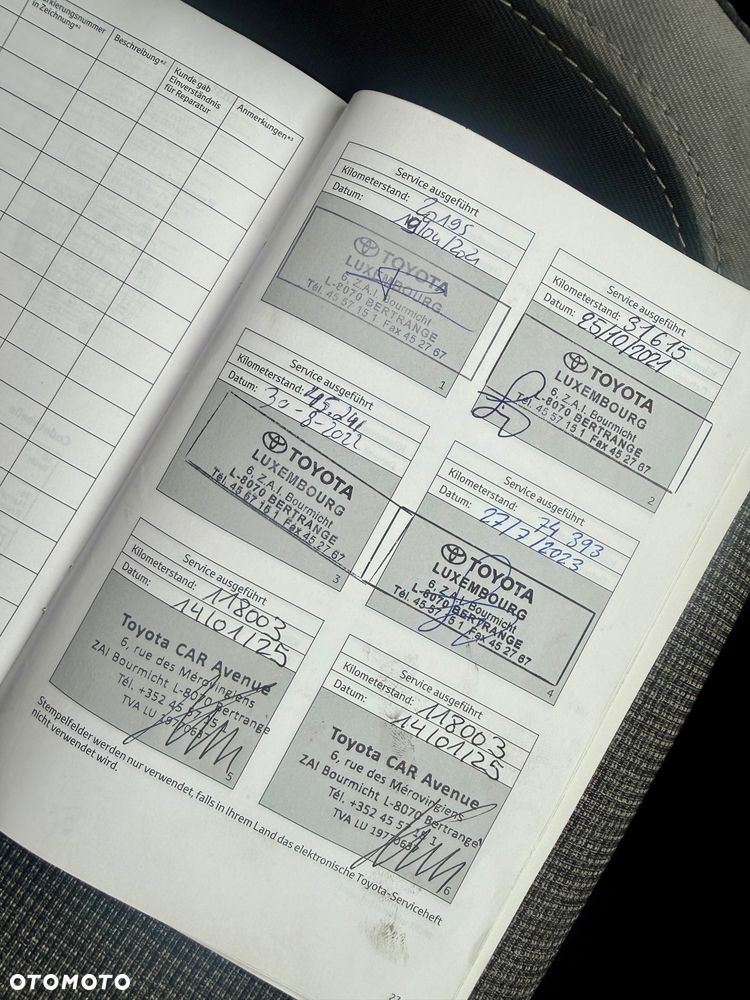 kierungsnummer
in Zeichnung*¹
Beschreibung*²
Kunde gab
Einverständnis
für Reparatur
Anmerkungen*³
Service ausgeführt
Kilometerstand: 20195
Datum: 19/04/2021
TOYOTA
LUXEMBOURG
6, Z.A.I. Bourmicht
L-8070 BERTRANGE
Tél. 45 57 15 1 Fax 45 27 67
1
Service ausgeführt
Kilometerstand: 31615
Datum: 25/10/2021
TOYOTA
LUXEMBOURG
6, Z.A.I. Bourmicht
L-8070 BERTRANGE
Tél. 45 57 15 1 Fax 45 27 67
2
Service ausgeführt
Kilometerstand: 45.241
Datum: 30-8-2022
TOYOTA
LUXEMBOURG
6, Z.A.I. Bourmicht
L-8070 BERTRANGE
Tél. 45 57 15 1 Fax 45 27 67
3
Service ausgeführt
Kilometerstand: 74 393
Datum: 27/7/2023
TOYOTA
LUXEMBOURG
6, Z.A.I. Bourmicht
L-8070 BERTRANGE
Tél. 45 57 15 1 Fax 45 27 67
4
Service ausgeführt
Kilometerstand: 118003
Datum: 14/01/25
Toyota CAR Avenue
6, rue des Mérovingiens
ZAI Bourmicht L-8070 Bertrange
Tél. +352 45 57 15 1
TVA LU
5
Service ausgeführt
Kilometerstand: 118003
Datum: 14/01/25
Toyota CAR Avenue
6, rue des Mérovingiens
ZAI Bourmicht L-8070 Bertrange
Tél. +352 45 57 15 1
TVA LU
6
Stempelfelder werden nur verwendet, falls in Ihrem Land das elektronische Toyota-Serviceheft
nicht verwendet wird.
OTOMOTO